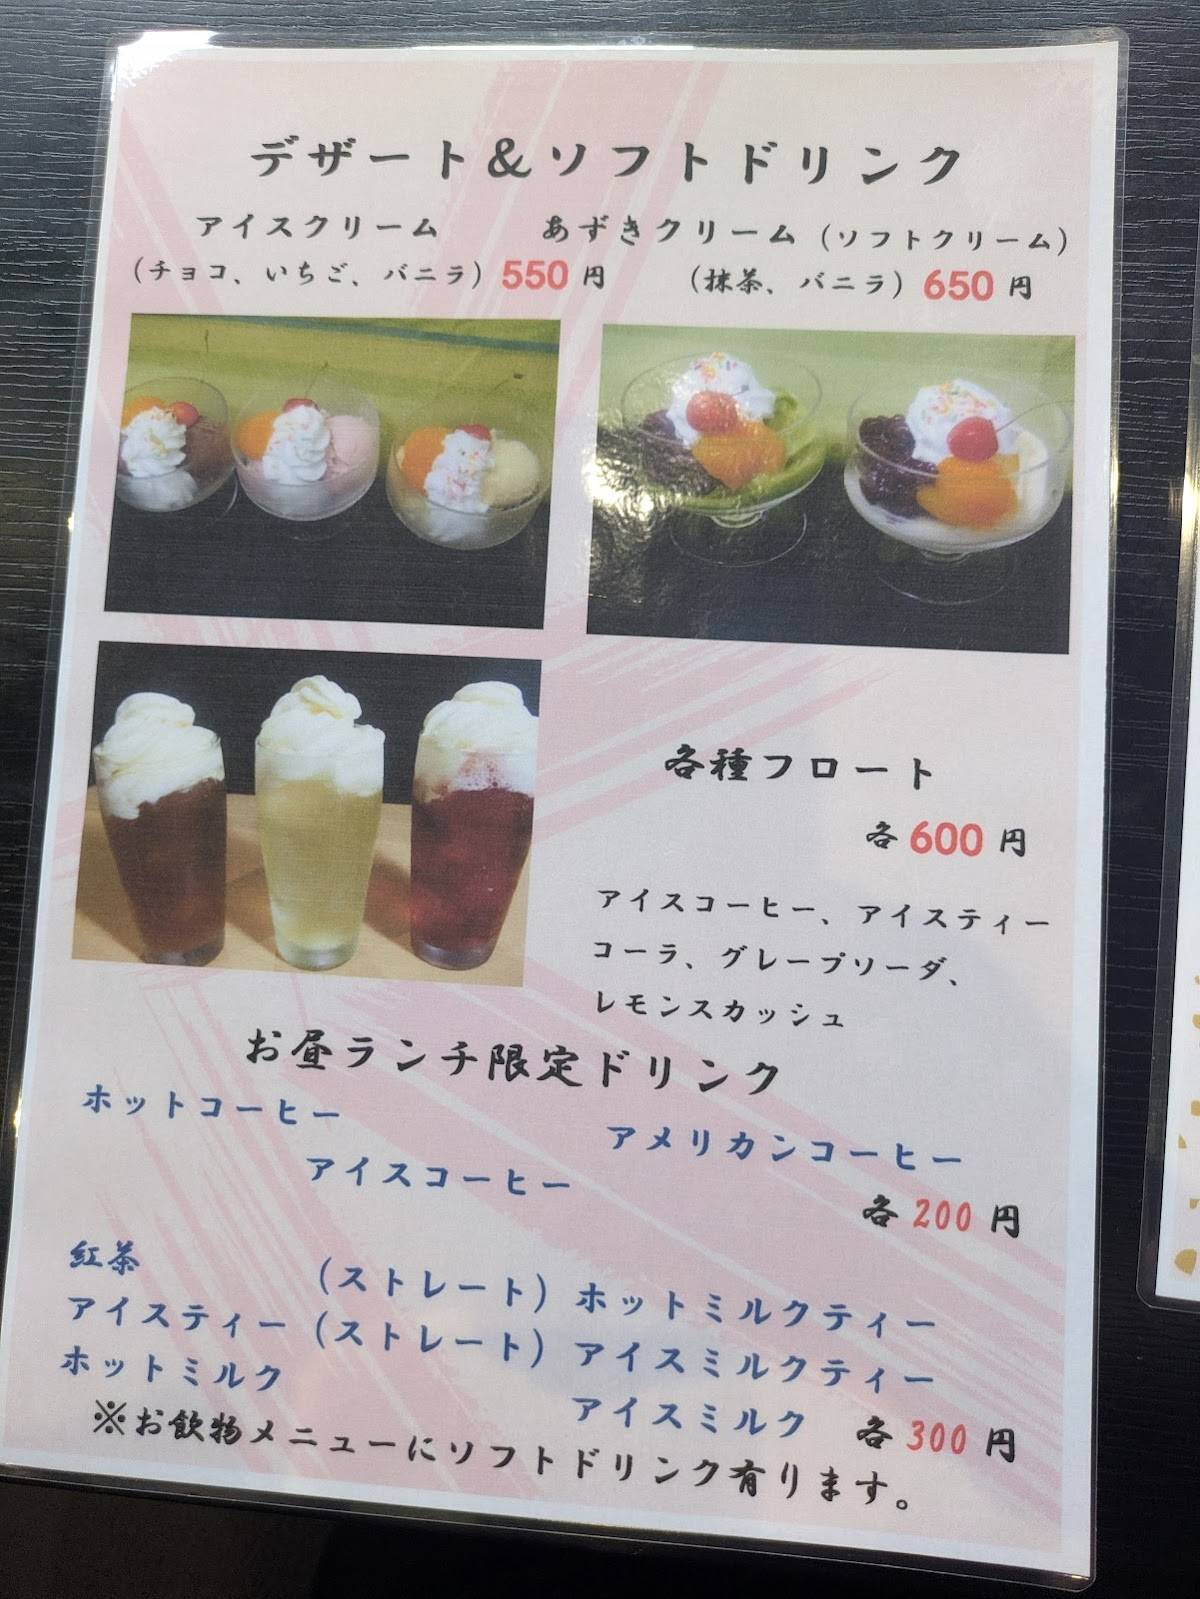 デザート&ソフトドリンク
アイスクリーム
(チョコ、いちご、バニラ) 550 円
あずきクリーム (ソフトクリーム)
(抹茶、バニラ) 650 円
各種フロート
各 600 円
アイスコーヒー、アイスティー
コーラ、グレープソーダ、
レモンスカッシュ
お昼ランチ限定ドリンク
ホットコーヒー
アメリカンコーヒー
アイスコーヒー
各 200 円
紅茶 (ストレート) ホットミルクティー
アイスティー (ストレート) アイスミルクティー
ホットミルク アイスミルク 各 300 円
※お飲物メニューにソフトドリンク有ります。